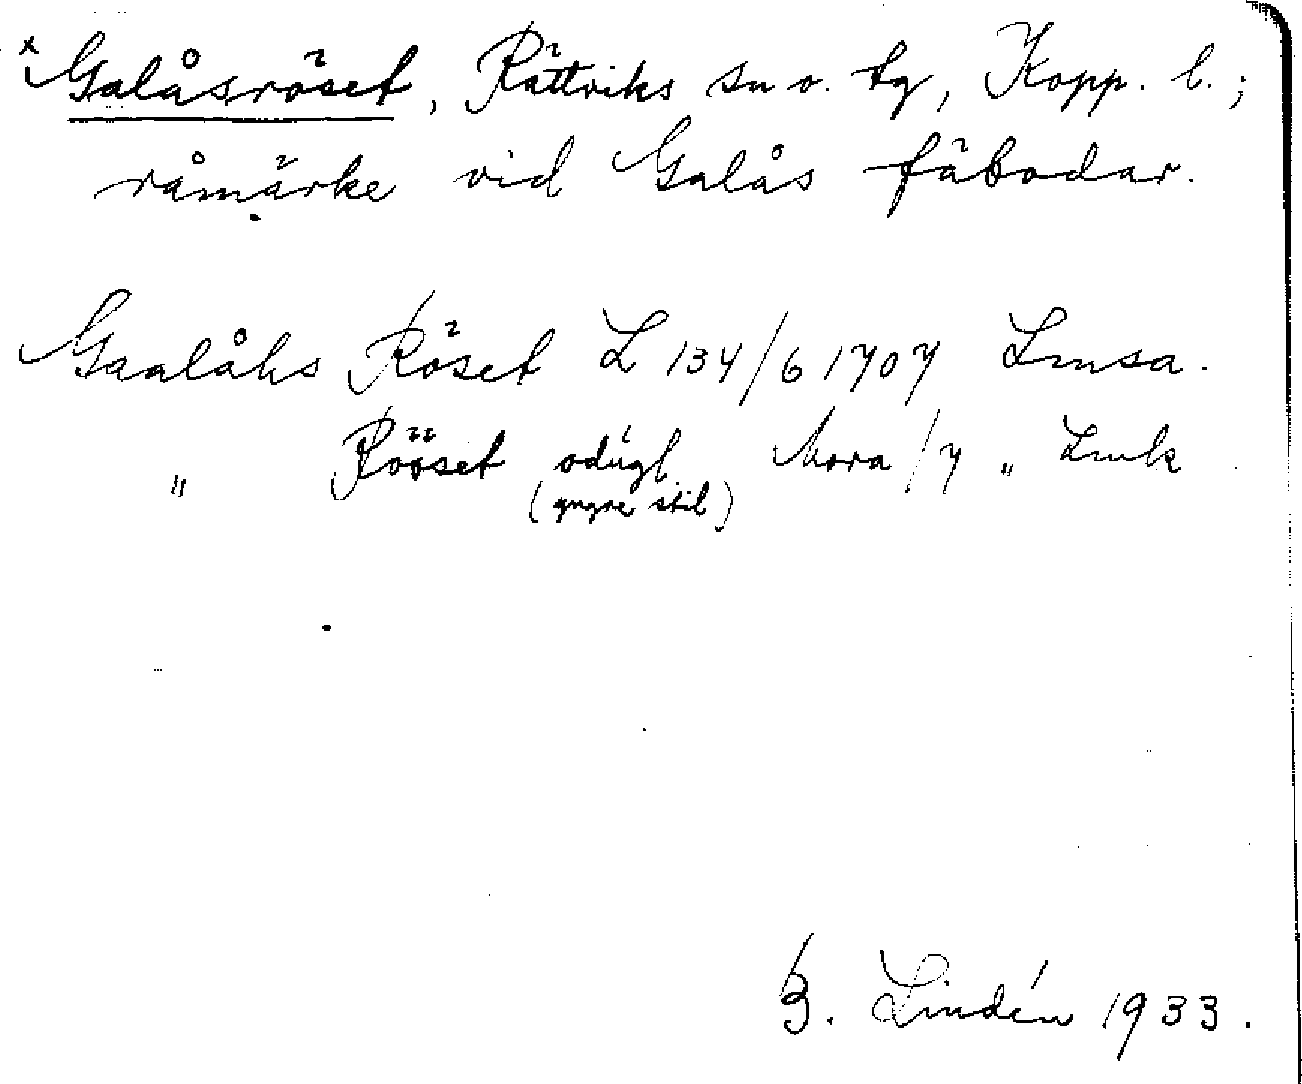 x Galåsröset, Rättviks sn o. tg, Kopp. l.;
råmärke vid Galås fäbodar.
Gaalåhs Röset L 134/6 1707 Lmsa.
" Rööset odugl. Mora /7 " Lmk
(yngre stil)
B. Lindén 1933.